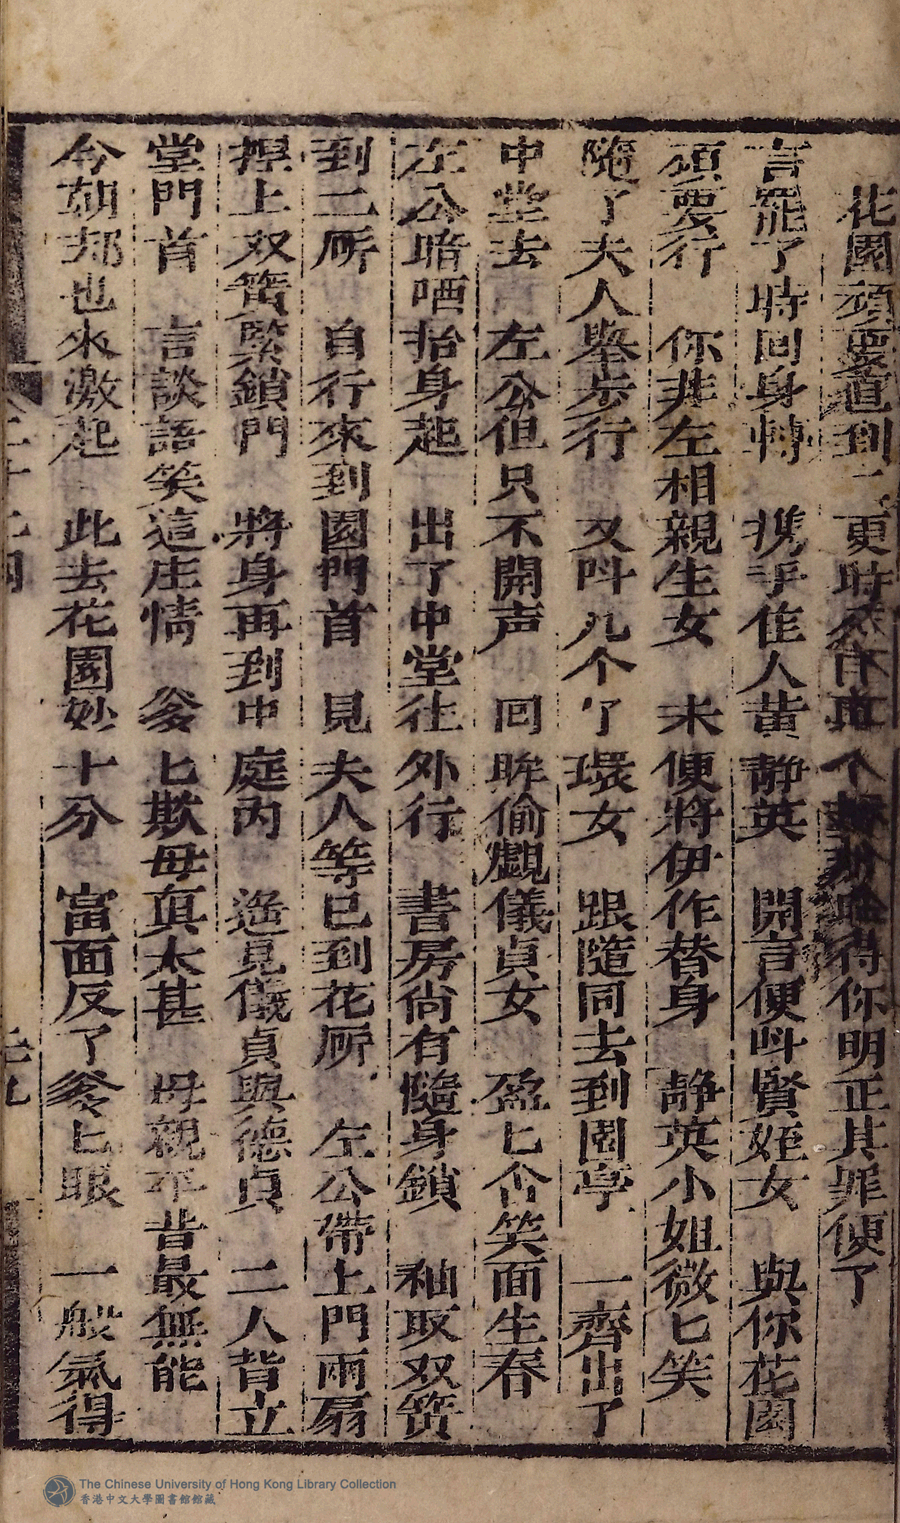 花園頑耍直到二更時
得你明正其罪便了
言罷了時回身轉 携手佳人黄靜英 開言便呌賢姪女 與你花園
頑耍行 你非左相親生女 未便將伊作替身 靜英小姐微匕笑
隨了夫人舉步行 又呌几个了環女 跟隨同去到園亭 一齊出了
中堂去 左公但只不開声 回眸偷覷儀貞女 盈匕含笑面生春
左公暗哂抬身起 出了中堂往外行 書房尚有隨身鎖 袖取双簧
到二厛 自行來到園門首 見夫人等已到花厛 左公帶上門兩扇
捏上双簧緊鎖門 將身再到中庭內 遙見儀貞與德貞 二人背立
堂門首 言談語笑這庄情 爹匕欺母真太甚 母親平昔最無能
今朝却也來激起 此去花園妙十分 當面反了爹匕眼 一般氣得
The Chinese University of Hong Kong Library Collection
香港中文大學圖書館館藏